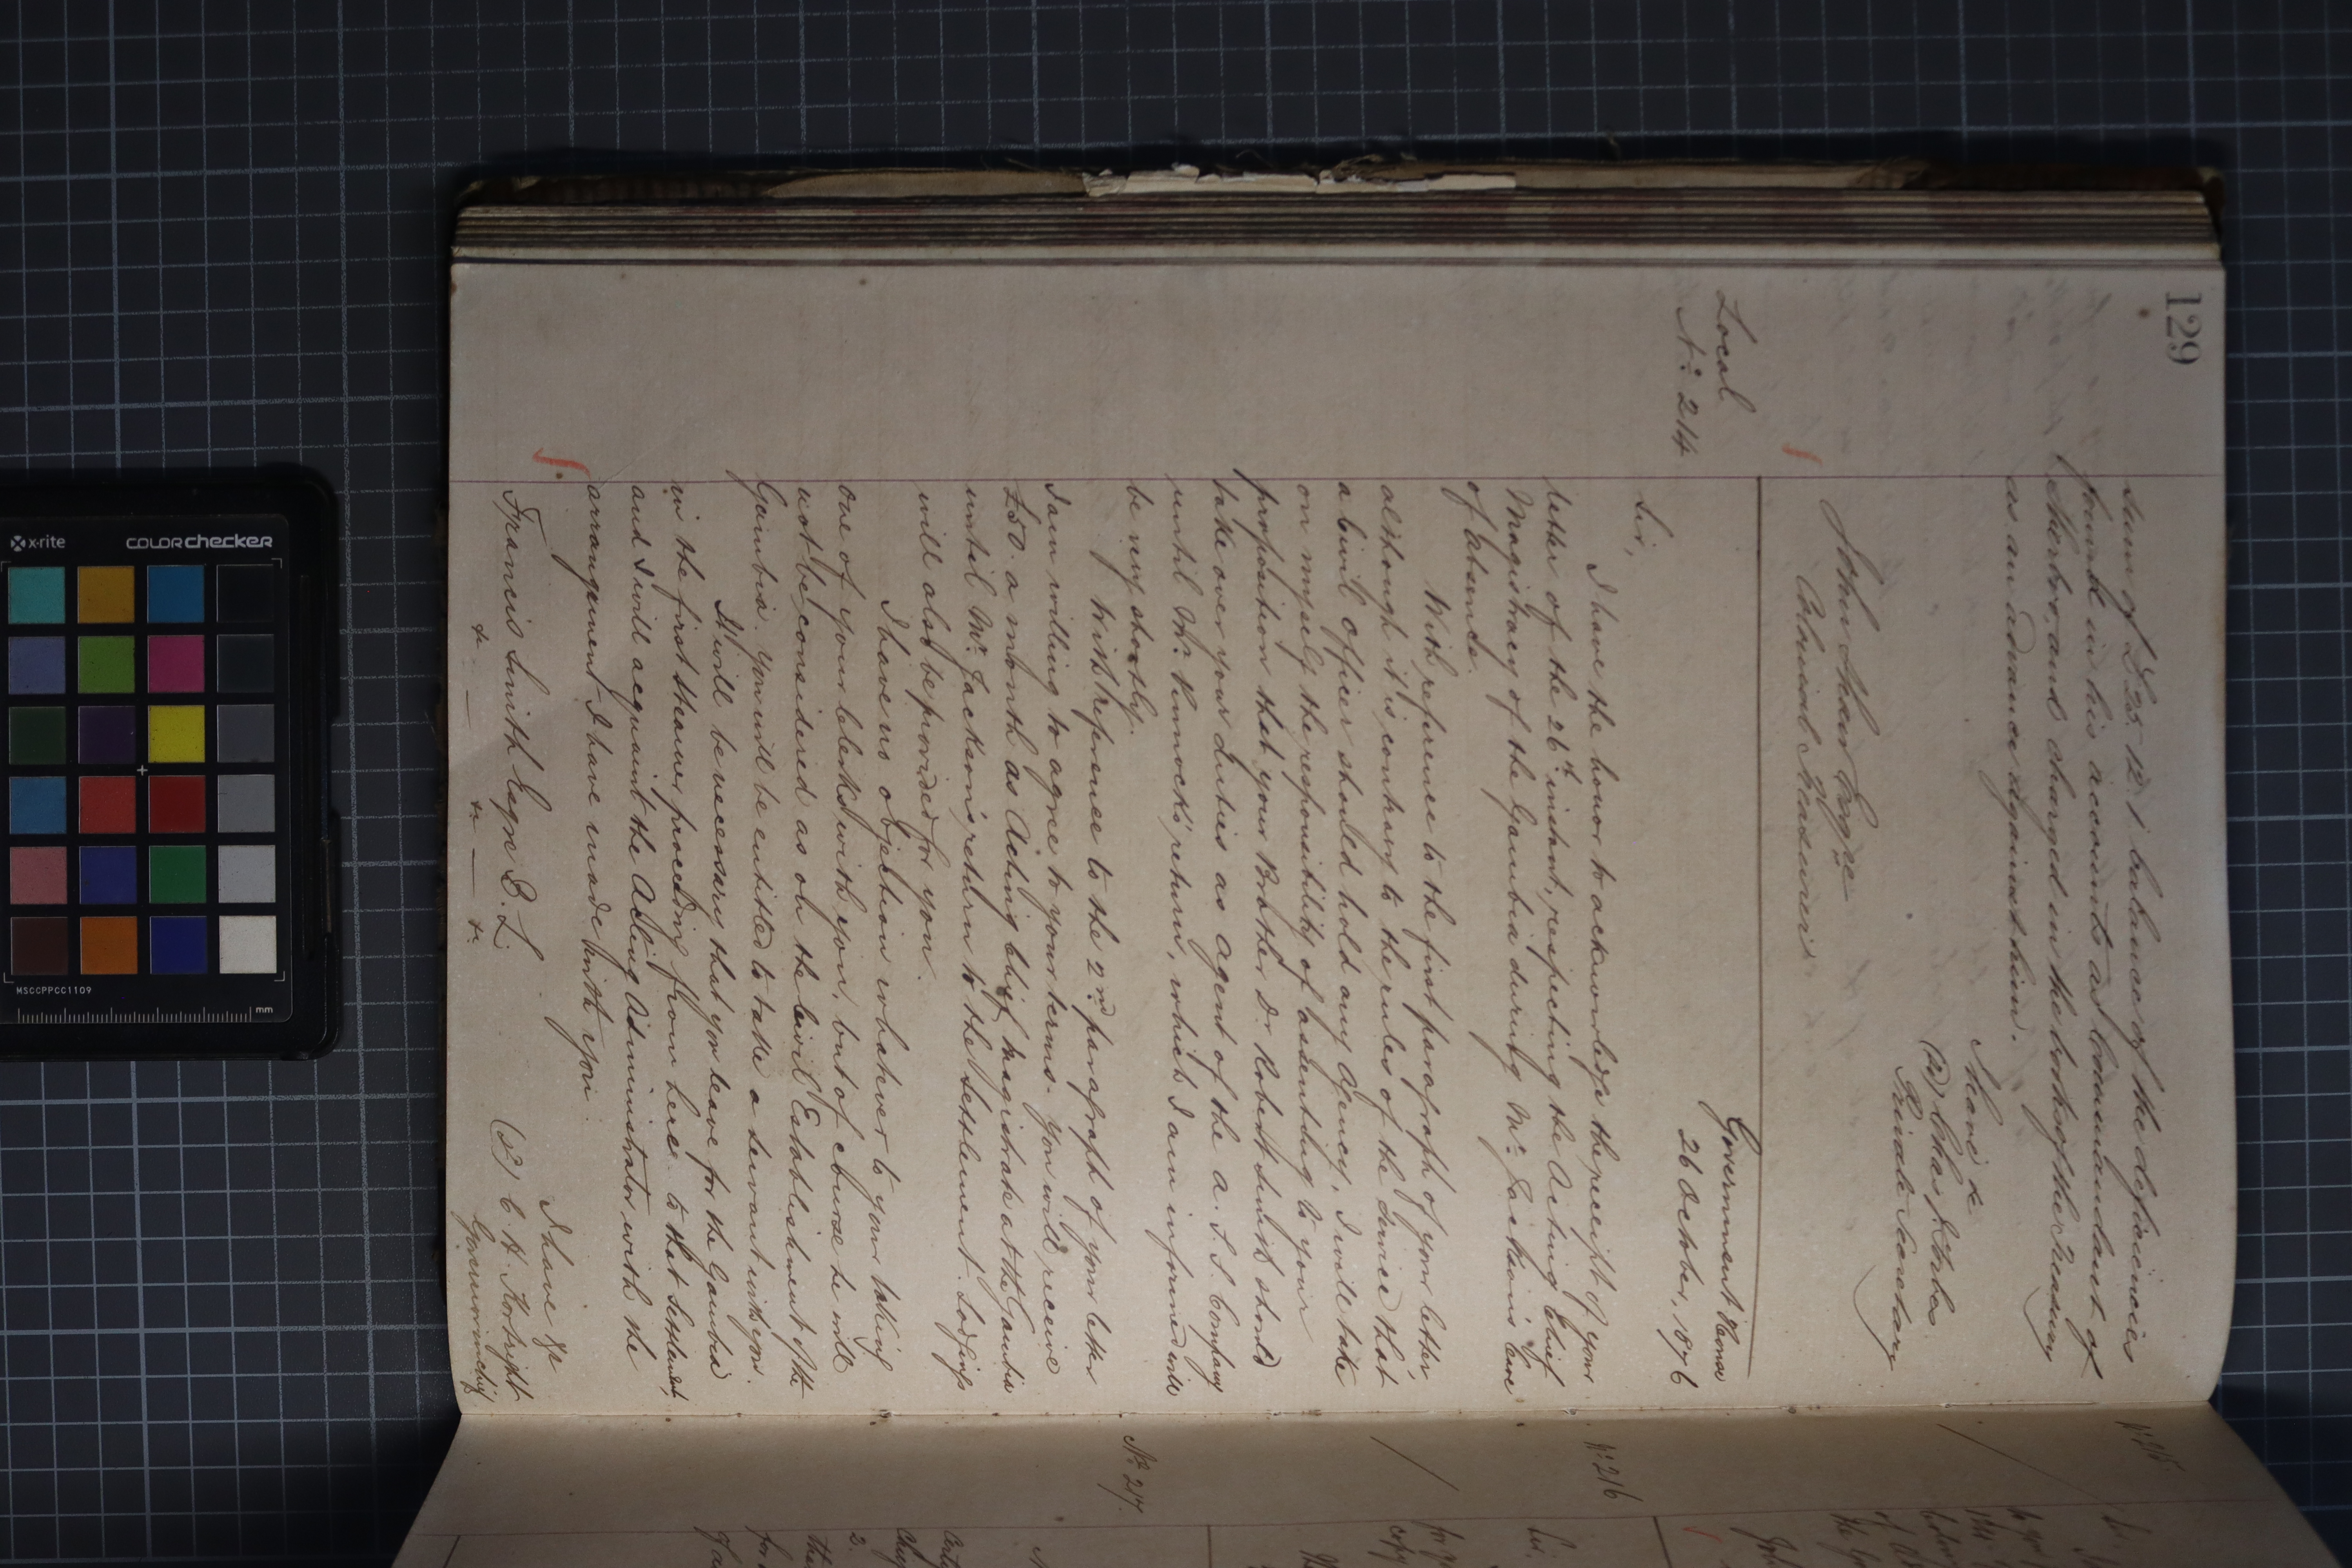 129
sum of £25.12.1 balance of the deficiencies
found in his accounts as Commandant of
Sherbro, and charged in the books of the Treasury
as an advance against him.
I have &c
Private Secretary
John Shaw Esqre
Colonial Treasurer
Local
No: 214
Government House
26 October, 1876
Sir,
I have the honor to acknowledge the receipt of your
letter of the 26th instant, respecting the Acting Chief
Magistracy of the Gambia during Mr. Jackson's leave
of absence.
With reference to the first paragraph of your letter,
although it is contrary to the rules of the Service that
a Civil Officer should hold any Agency, I will take
on myself the responsibility of assenting to your
proposition that your Brother Dr Robert Smith should
take over your duties as agent of the A. S. S. Company
until Mr. Kinnock's return, which I am informed will
be very shortly.
With reference to the 2nd paragraph of your letter
I am willing to agree to your terms. You will receive
£50. a month as Acting Chief Magistrate at the Gambia
until Mr. Jackson's return to the Settlement. Lodgings
will also be provided for you.
I have no objection whatever to your taking
one of your Clerks with you, but of course he will
not be considered as on the Civil Establishment of the
Gambia. You will be entitled to take a servant with you.
It will be necessary that you leave for the Gambia
in the first steamer proceeding from here to that Settlement,
and I will acquaint the Acting Administrator with the
arrangement I have made with you.
I have &c
(sd) C. H. Kortright
Governor in chief
Francis Smith Esqre B. L.
&c — &c — &c
No: 215
No: 216
No: 217.
Sir,
Sir.
copy
2.